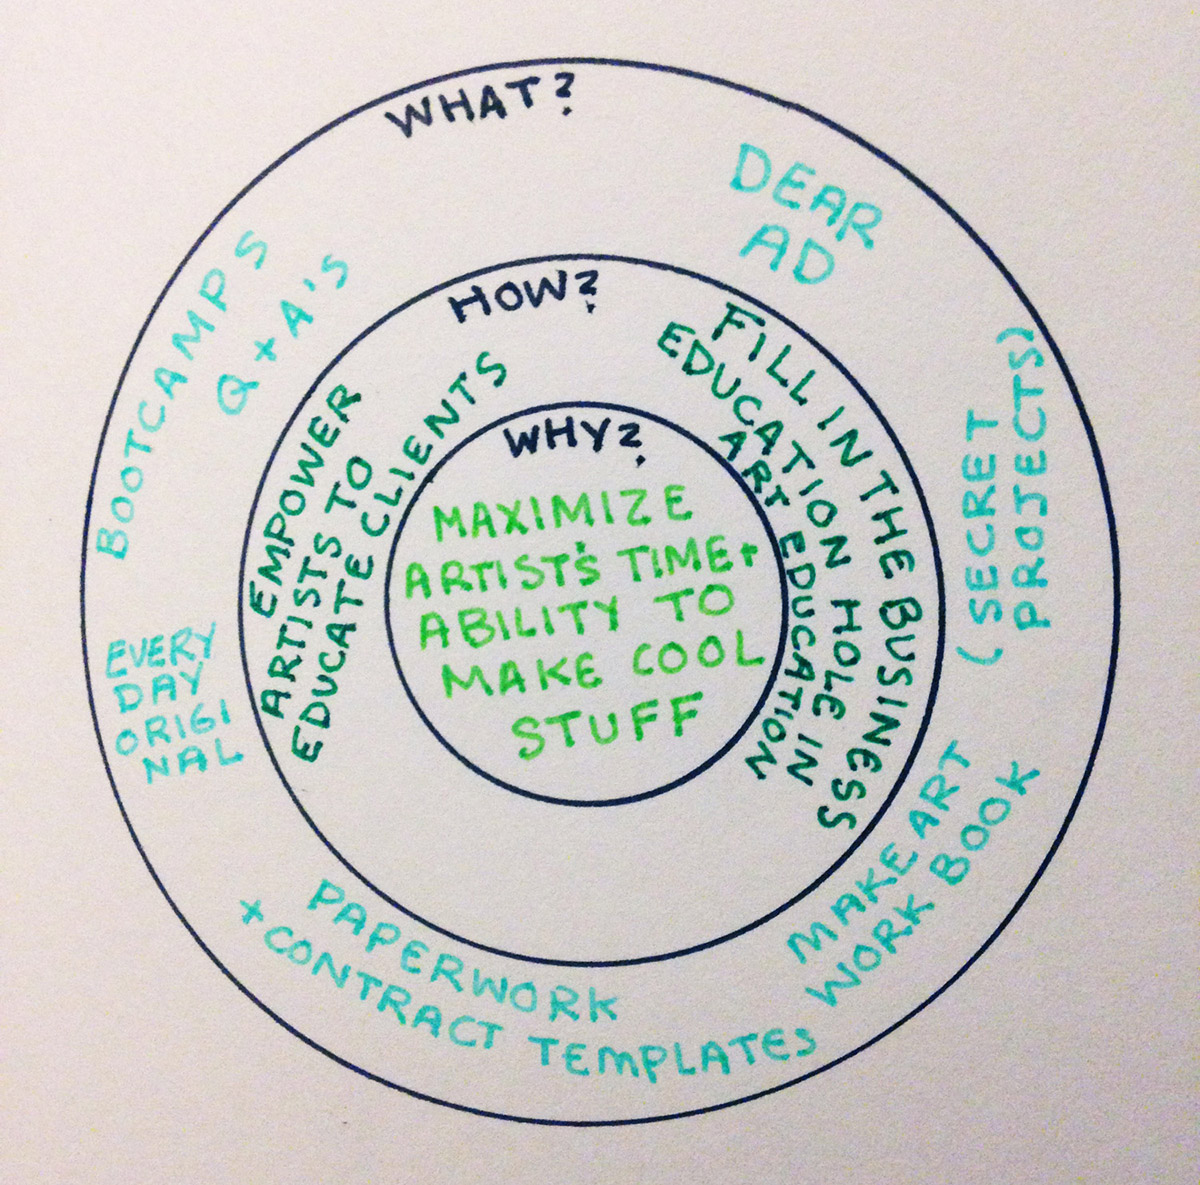 WHAT?
DEAR
AD
(SECRET
PROJECTS)
MAKE ART
WORK BOOK
PAPERWORK
+ CONTRACT TEMPLATES
EVERY
DAY
ORIGI
NAL
BOOTCAMPS
Q + A'S
HOW?
FILL IN THE BUSINESS
EDUCATION HOLE IN
ART EDUCATION
EMPOWER
ARTISTS TO
EDUCATE CLIENTS
WHY?
MAXIMIZE
ARTIST'S TIME +
ABILITY TO
MAKE COOL
STUFF